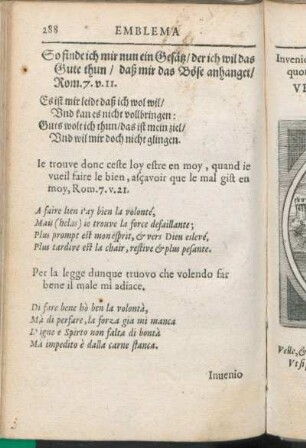 288 EMBLEMA
So finde ich mir nun ein Gesätz/der ich wil das
Gute thun / daß mir das Böse anhanget/
Rom. 7. v. 11.
Es ist mir leidt daß ich wol wil/
Vnd kan es nicht vollbringen:
Guts wolt ich thun/das ist mein ziel/
Vnd wil mir doch nicht glingen.
Ie trouve donc ceste loy estre en moy, quand ie
vueil faire le bien, asçavoir que le mal gist en
moy, Rom. 7. v. 21.
A faire bien i'ay bien la volonté,
Mais (helas) ie trouve la force defaillante;
Plus prompt est mon ésprit, & vers Dien eslevé,
Plus tardive est la chair, restive & plus pesante.
Per la legge dunque truovo che volendo far
bene il male mi adiace.
Di fare bene hò ben la volontà,
Mà di per fare, la forza gia mi manca
L' igne o Spirto non falta di bontà
Ma impedito è dalla carne stanca.
Invenio
Invenio
quo
VE
Velle, &
Vt si